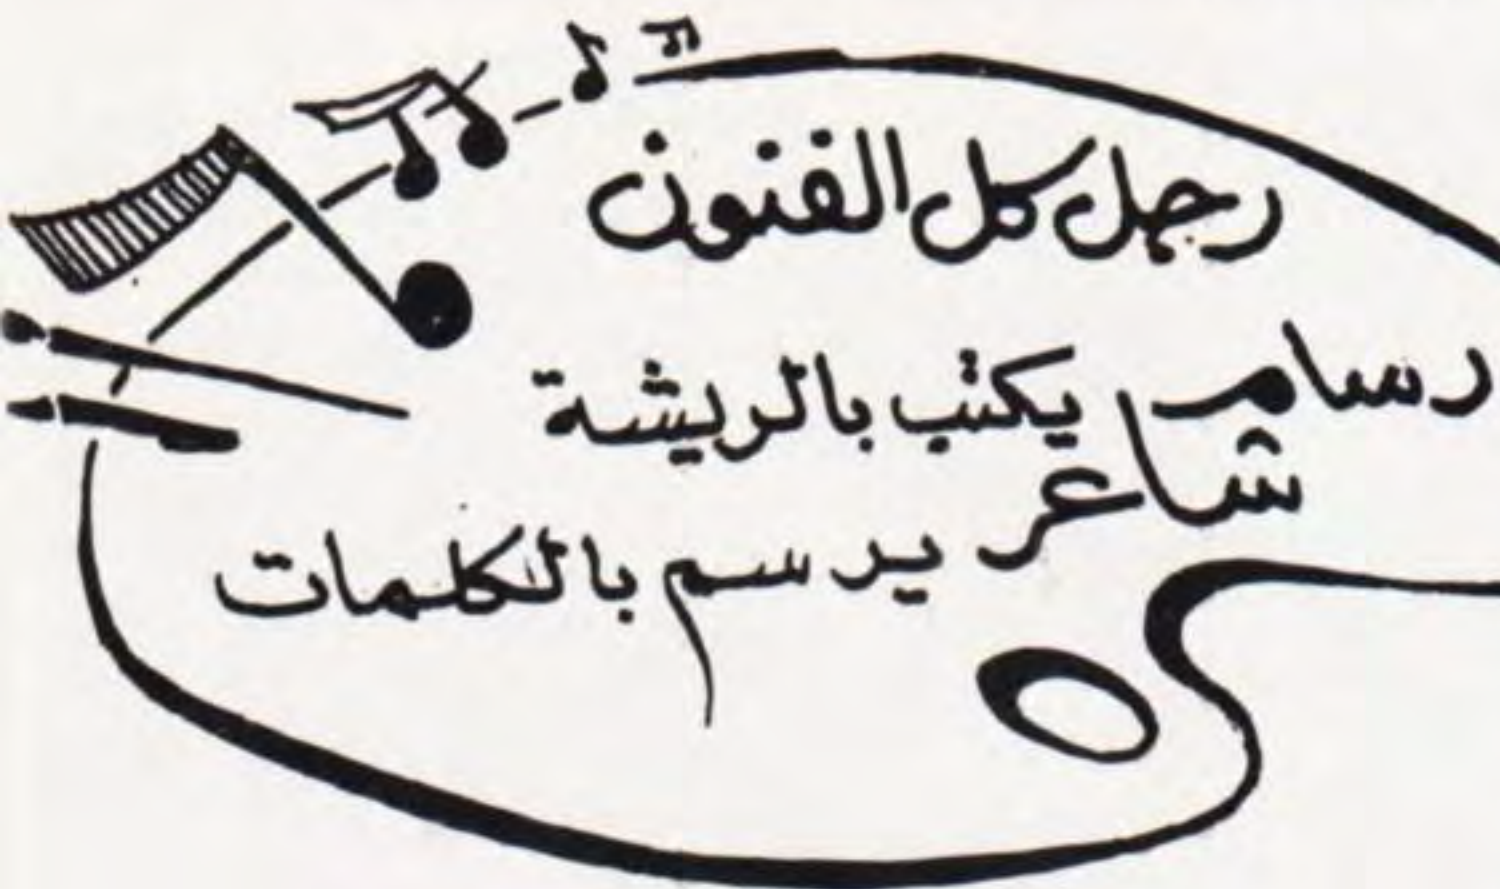 رجل كل الفنون
رسام يكتب بالريشة
شاعر يرسم بالكلمات